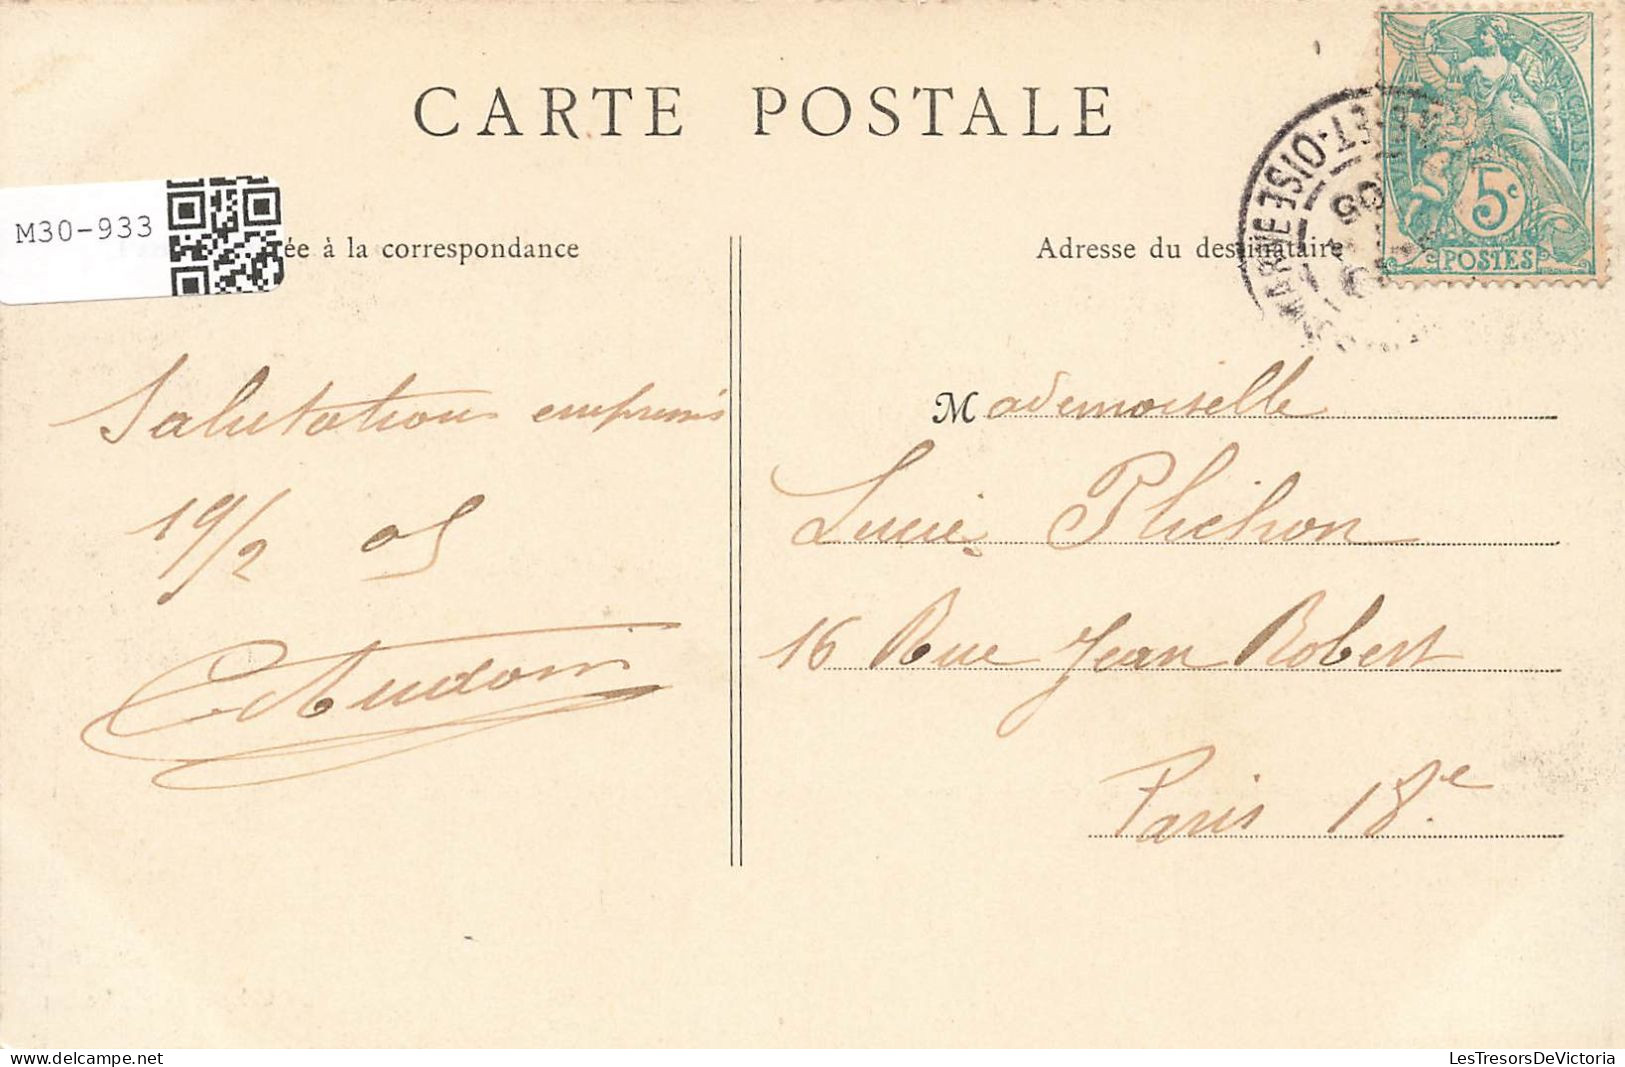 CARTE POSTALE
M30-933
ée à la correspondance
Adresse du destinataire
FRANÇAISE
5c
POSTES
ET-OISE
05
Salutations empressés
19/2 05
Audoin
Mademoiselle
Lucie Plichon
16 Rue Jean Robert
Paris 18.e
delcampe.net
LesTresorsDeVictoria